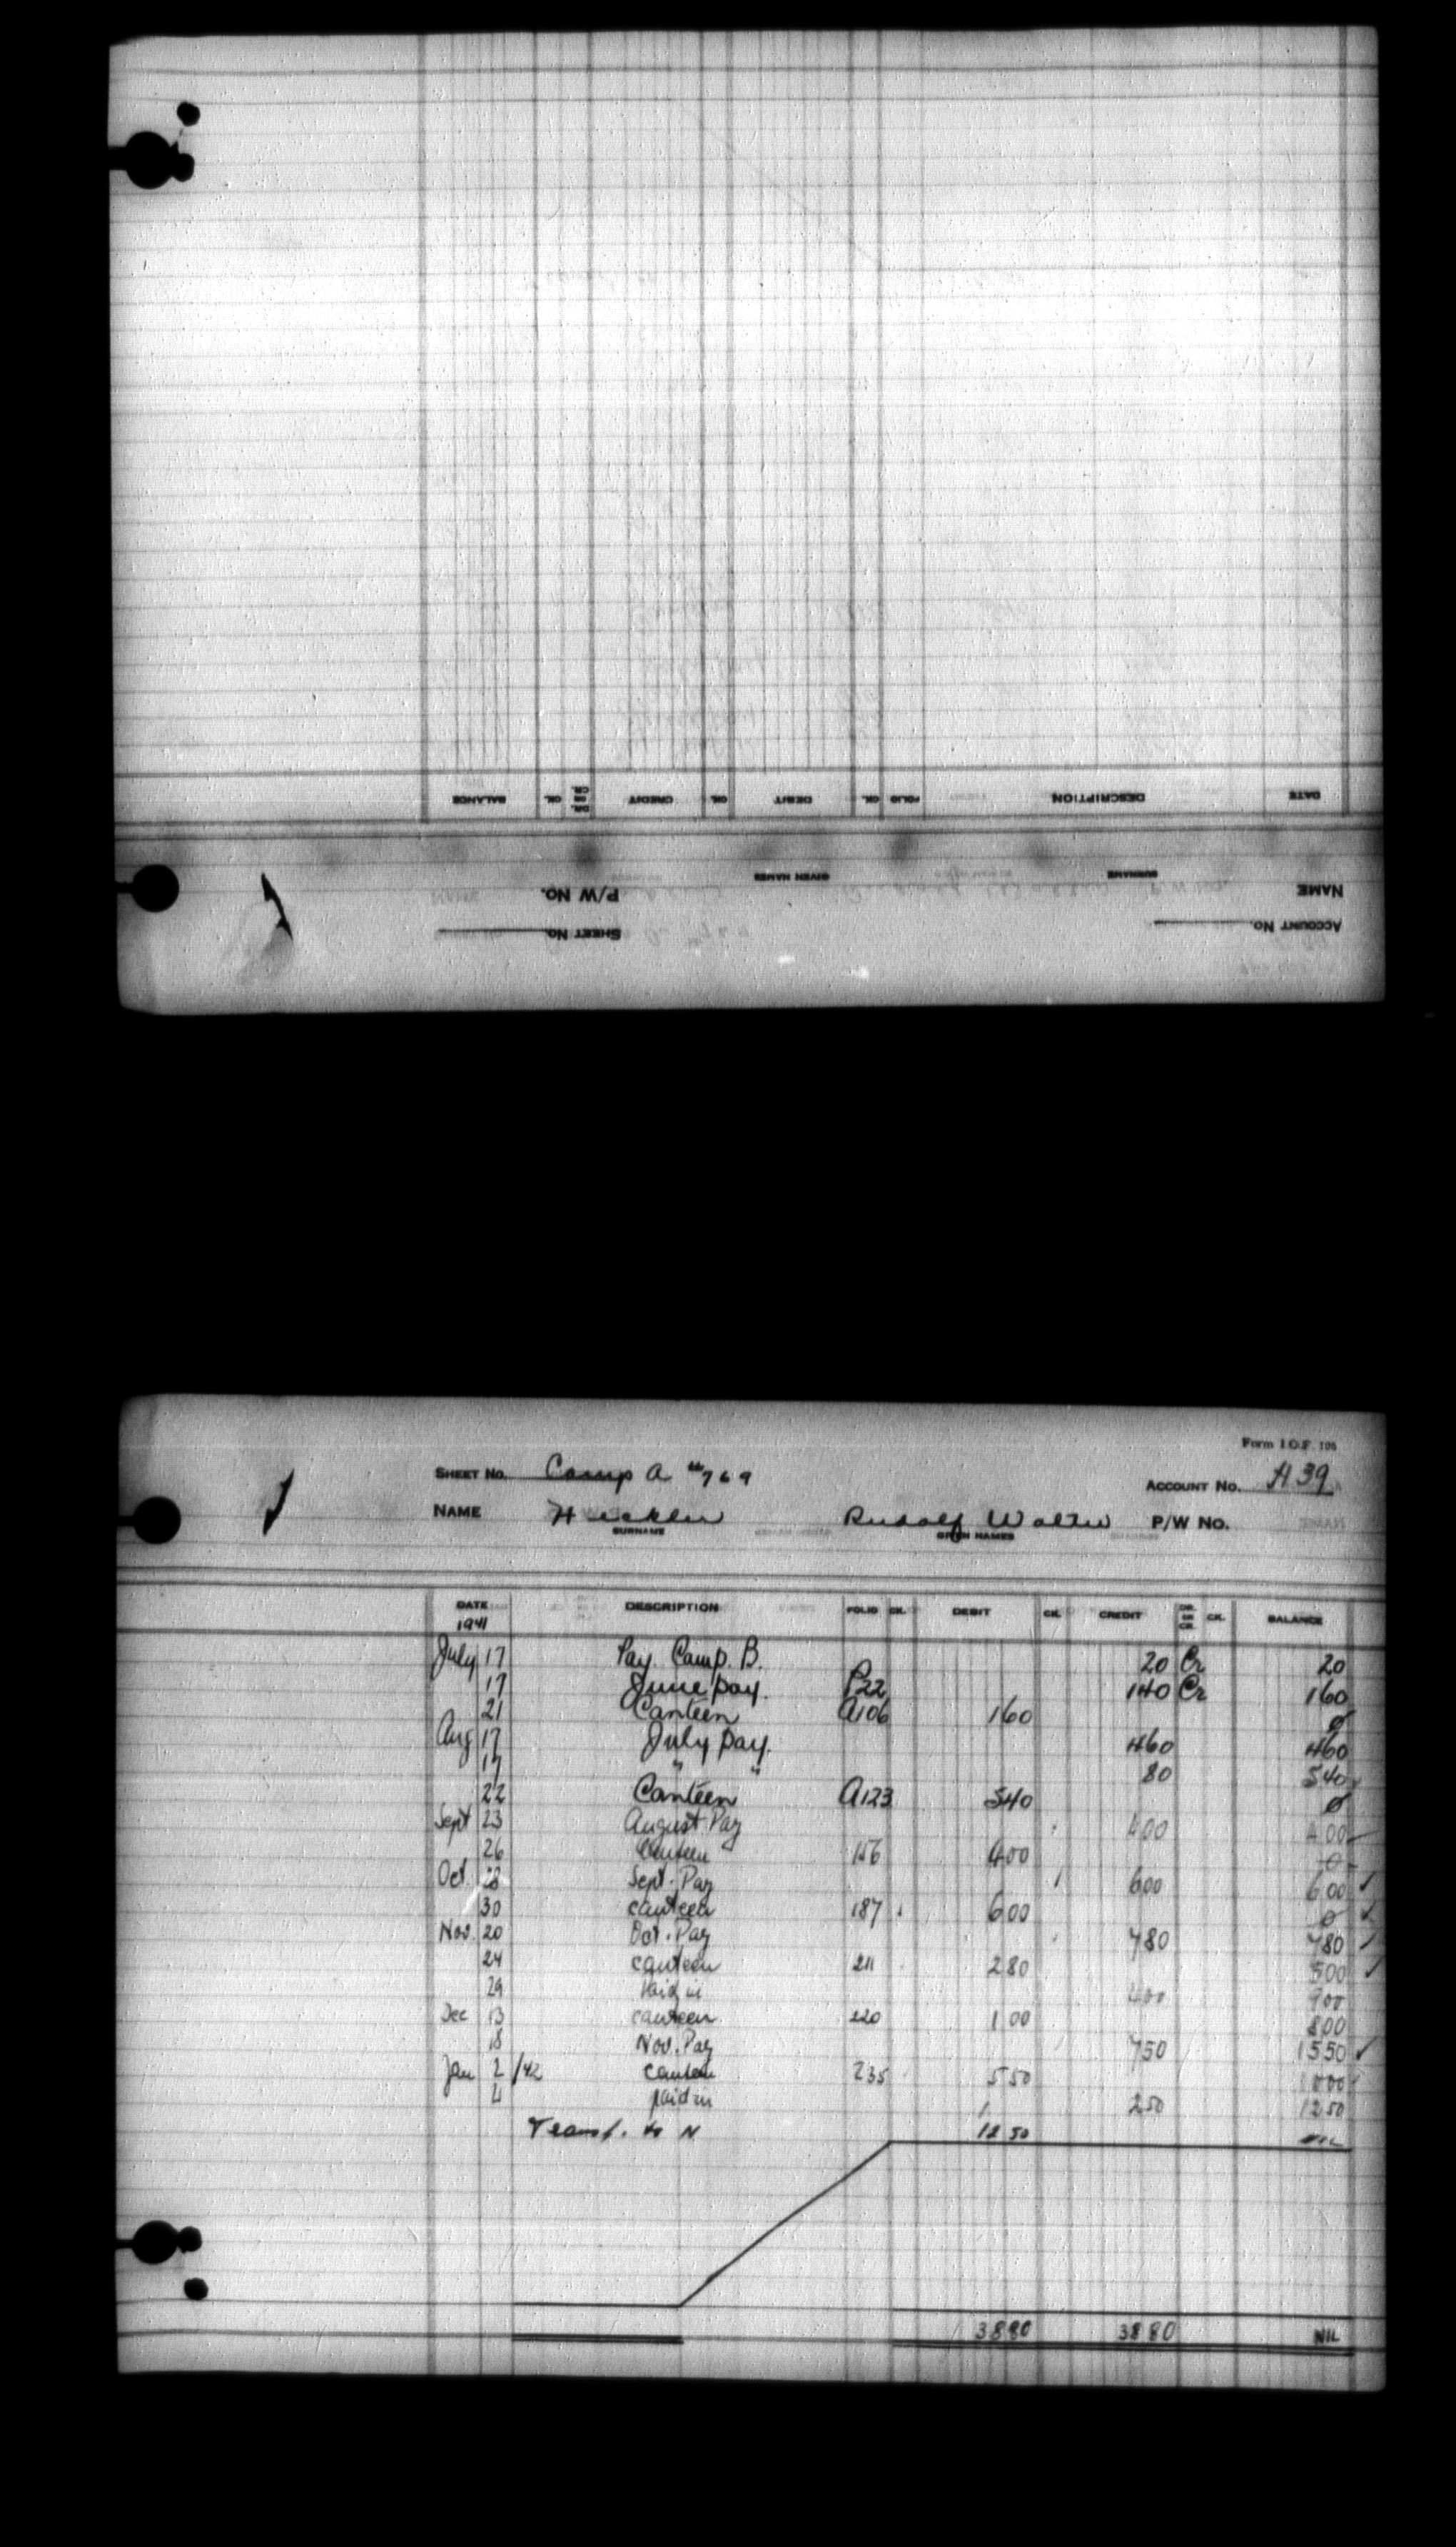 BALANCE CK. DR. OR CR. CREDIT CK. DEBIT CK. FOLIO DESCRIPTION DATE
P/W NO. GIVEN NAMES SURNAME NAME
SHEET NO. ACCOUNT NO.
Form I.O.F. 106
SHEET NO. Camp A 769 ACCOUNT NO. H 39
NAME Rudolf Walter P/W NO.
SURNAME GIVEN NAMES
DATE DESCRIPTION FOLIO CK. DEBIT CK. CREDIT DR. OR CR. CK. BALANCE
1941
July 17 Pay Camp. B. 20 Cr 20
17 June pay. P22 140 Cr 160
21 Canteen A106 160 0
Aug 17 July pay. 460 460
17 " " 80 540
22 Canteen A123 540 0
Sept 23 August Pay 400 400
26 Canteen 156 400 0
Oct. 28 Sept. Pay 600 600 ✓
30 canteen 187 600 0 ✓
Nov. 20 Oct. Pay 780 780 ✓
24 canteen 211 280 500 ✓
29 Paid in 400 900
Dec 13 canteen 220 100 800
18 Nov. Pay 750 1550 ✓
Jan 2 /42 canteen 235 550 1000
4 paid in 250 1250
Transf. to N 1250 NIL
3880 3880 NIL